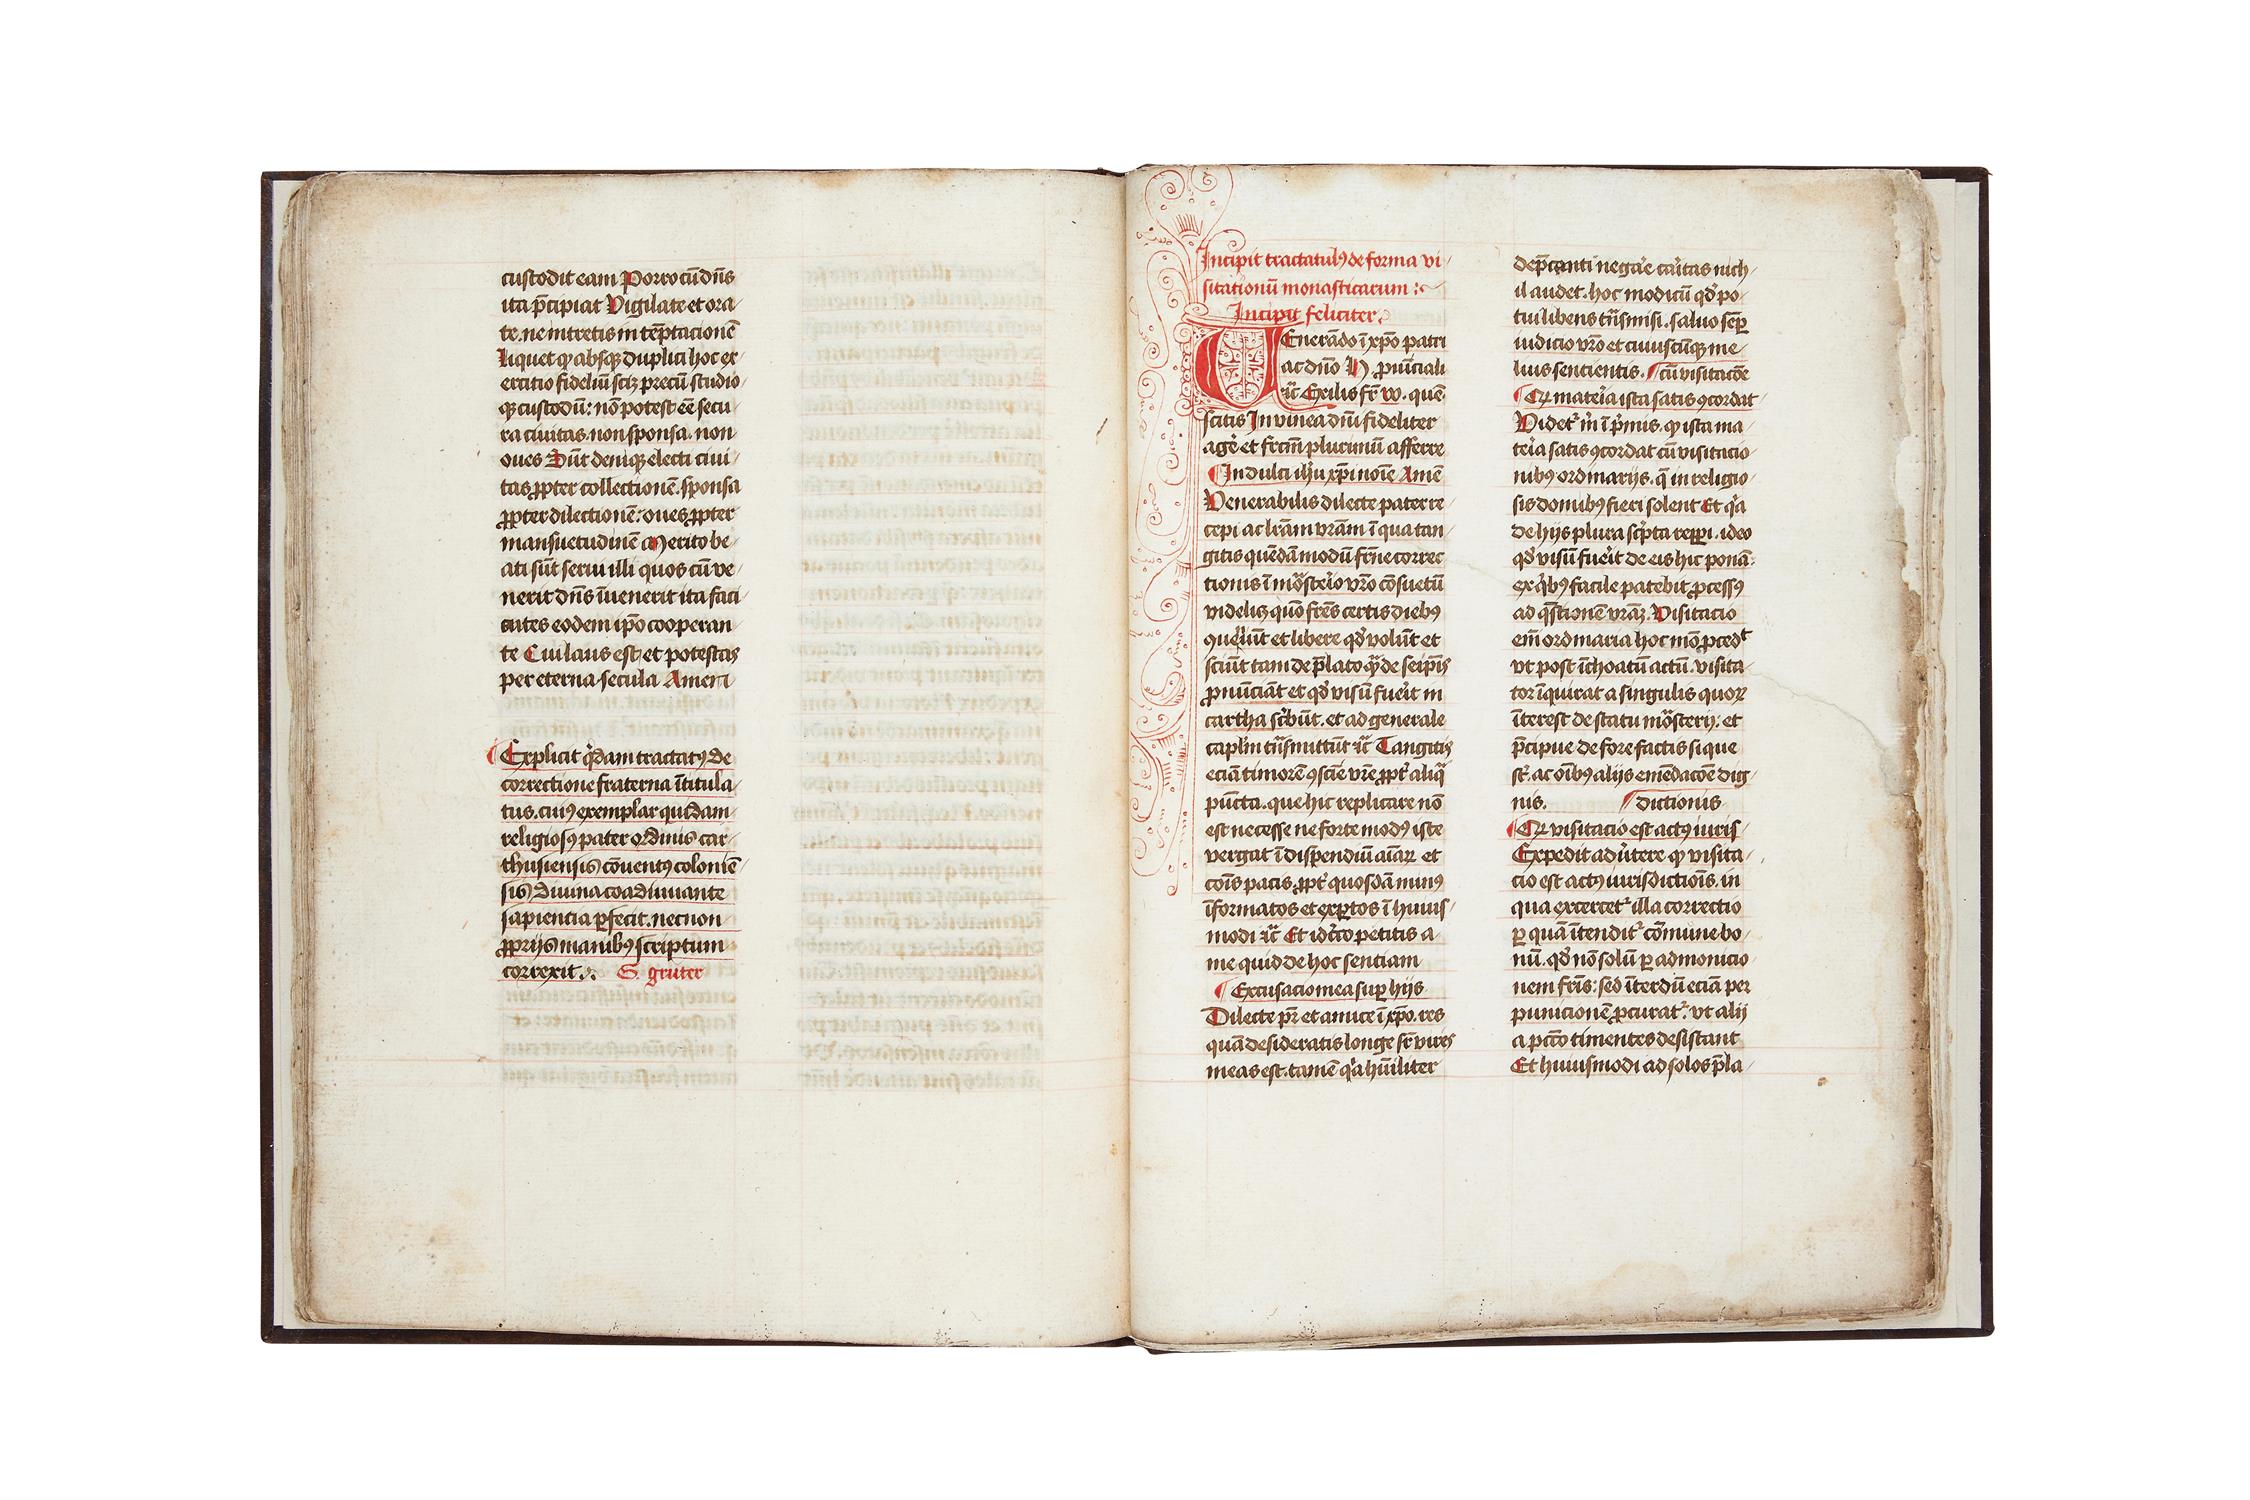 custodit eam Porro cū dn̄s
ita p̄cipiat Vigilate et ora
te. ne intretis in tēptacionē
Liquet ꝙ absqꝫ duplici hoc ex
ercitio fideliū scꝫ precū studio
qꝫ custodū: nō potest eē secu
ra ciuitas. non sponsa. non
oues Dūt deniqꝫ electi ciui
tas ꝓpter collectionē. sponsa
ꝓpter dilectionē: oues ꝓpter
mansuetudinē Merito be
ati sūt serui illi quos cū ve
nerit dn̄s īuenerit ita faci
entes eodem ip̄o cooperan
te Cui laus est et potestas
per eterna secula Amen
Explicit q̄dam tractatꝰ de
correctione fraterna ītitula
tus. cuiꝰ exemplar quidam
religiosꝰ pater ordinis car
thusiensis cōuentꝰ colonien̄
sis diuina coadiuuante
sapientia ꝑfecit. necnon
ꝓprijs manibꝰ scriptum
correxit. S. gruter
Incipit tractatulꝰ de forma vi
sitationū monasticarum :
Incipit feliciter.
Venerādo ī xp̄o patri
ac dn̄o N ꝓuinciali
r̄c̄ Exilis fr̄ w. que
scitis In vinea dn̄i fideliter
agē et frc̄m plurimū afferre
In dulci ih̄u xp̄i noīe Amē
Venerabilis dilecte pater re
cepi ac lr̄am vr̄am ī qua tan
gitis quēdā modū fr̄ne correc
tionis ī mōsterio vr̄o cōsuetū
videlicꝫ quō fr̄es certis diebꝰ
ꝯueīut et libere qd̄ volūt et
sciūt tam de p̄lato q̄ de seip̄is
ꝓnūciāt et qd̄ visū fuerit in
cartha sc̄būt. et ad generale
capl̄m tn̄smittūt r̄c̄ Tangitis
eciā timorē ꝯscīe vr̄e ꝓpt̄ aliq̄
pūcta. que hic replicare nō
est necesse ne forte modꝰ iste
vergat ī dispendiū aīaꝝ et
cōis pacis. ꝓpt̄ quosdā minꝰ
īformatos et exꝑtos ī huius
modi r̄c̄ Et idc̄co petitis a
me quid de hoc sentiam
Excusacio mea suꝑ hijs
Dilecte pr̄ et amice ī xp̄o. res
quā desideratis longe sr̄ vires
meas est. tamē q̄a hūiliter
dep̄canti negare caritas nich
il audet. hoc modicū qd̄ po
tui libens tn̄smisi. saluo semꝑ
iudicio vr̄o et cuiuscūqꝫ me
lius sentientis. cū visitacōe
Qꝫ materia ista satis ꝯcordat
Videt᷑ m̄ ī p̄mis. ꝙ ista ma
teria satis ꝯcordat cū visitacio
nibꝰ ordinarijs. q̄ in religio
sis domibꝰ fieri solent Et q̄a
de hijs plura sc̄pta reꝑi. ideo
qd̄ visū fuerit de eis hic ponā
ex q̄bꝰ facile patebit ꝓcessꝰ
ad q̄stionē vr̄aꝫ. Visitacio
em̄ ordinaria hoc mō ꝓcedit
vt post īchoatū actū. visita
tor īquirat a singulis quoꝝ
īterest de statu mōsterij: et
p̄cipue de fore factis si que
st̄. ac oībꝰ alijs emēdacōe dig
nis. dictionis
Qꝫ visitacio est actꝰ iuris
Expedit aduertere ꝙ visita
cio est actꝰ iurisdictiōis. in
qua excercet᷑ illa correctio
ꝑ quā ītendit᷑ cōmune bo
nū. qd̄ nō solū ꝑ admonicio
nem fr̄nis: sed īterdū eciā per
punicionē ꝓcurat᷑. vt alij
a pcc̄o timentes desistant
Et huiusmodi ad solos p̄la